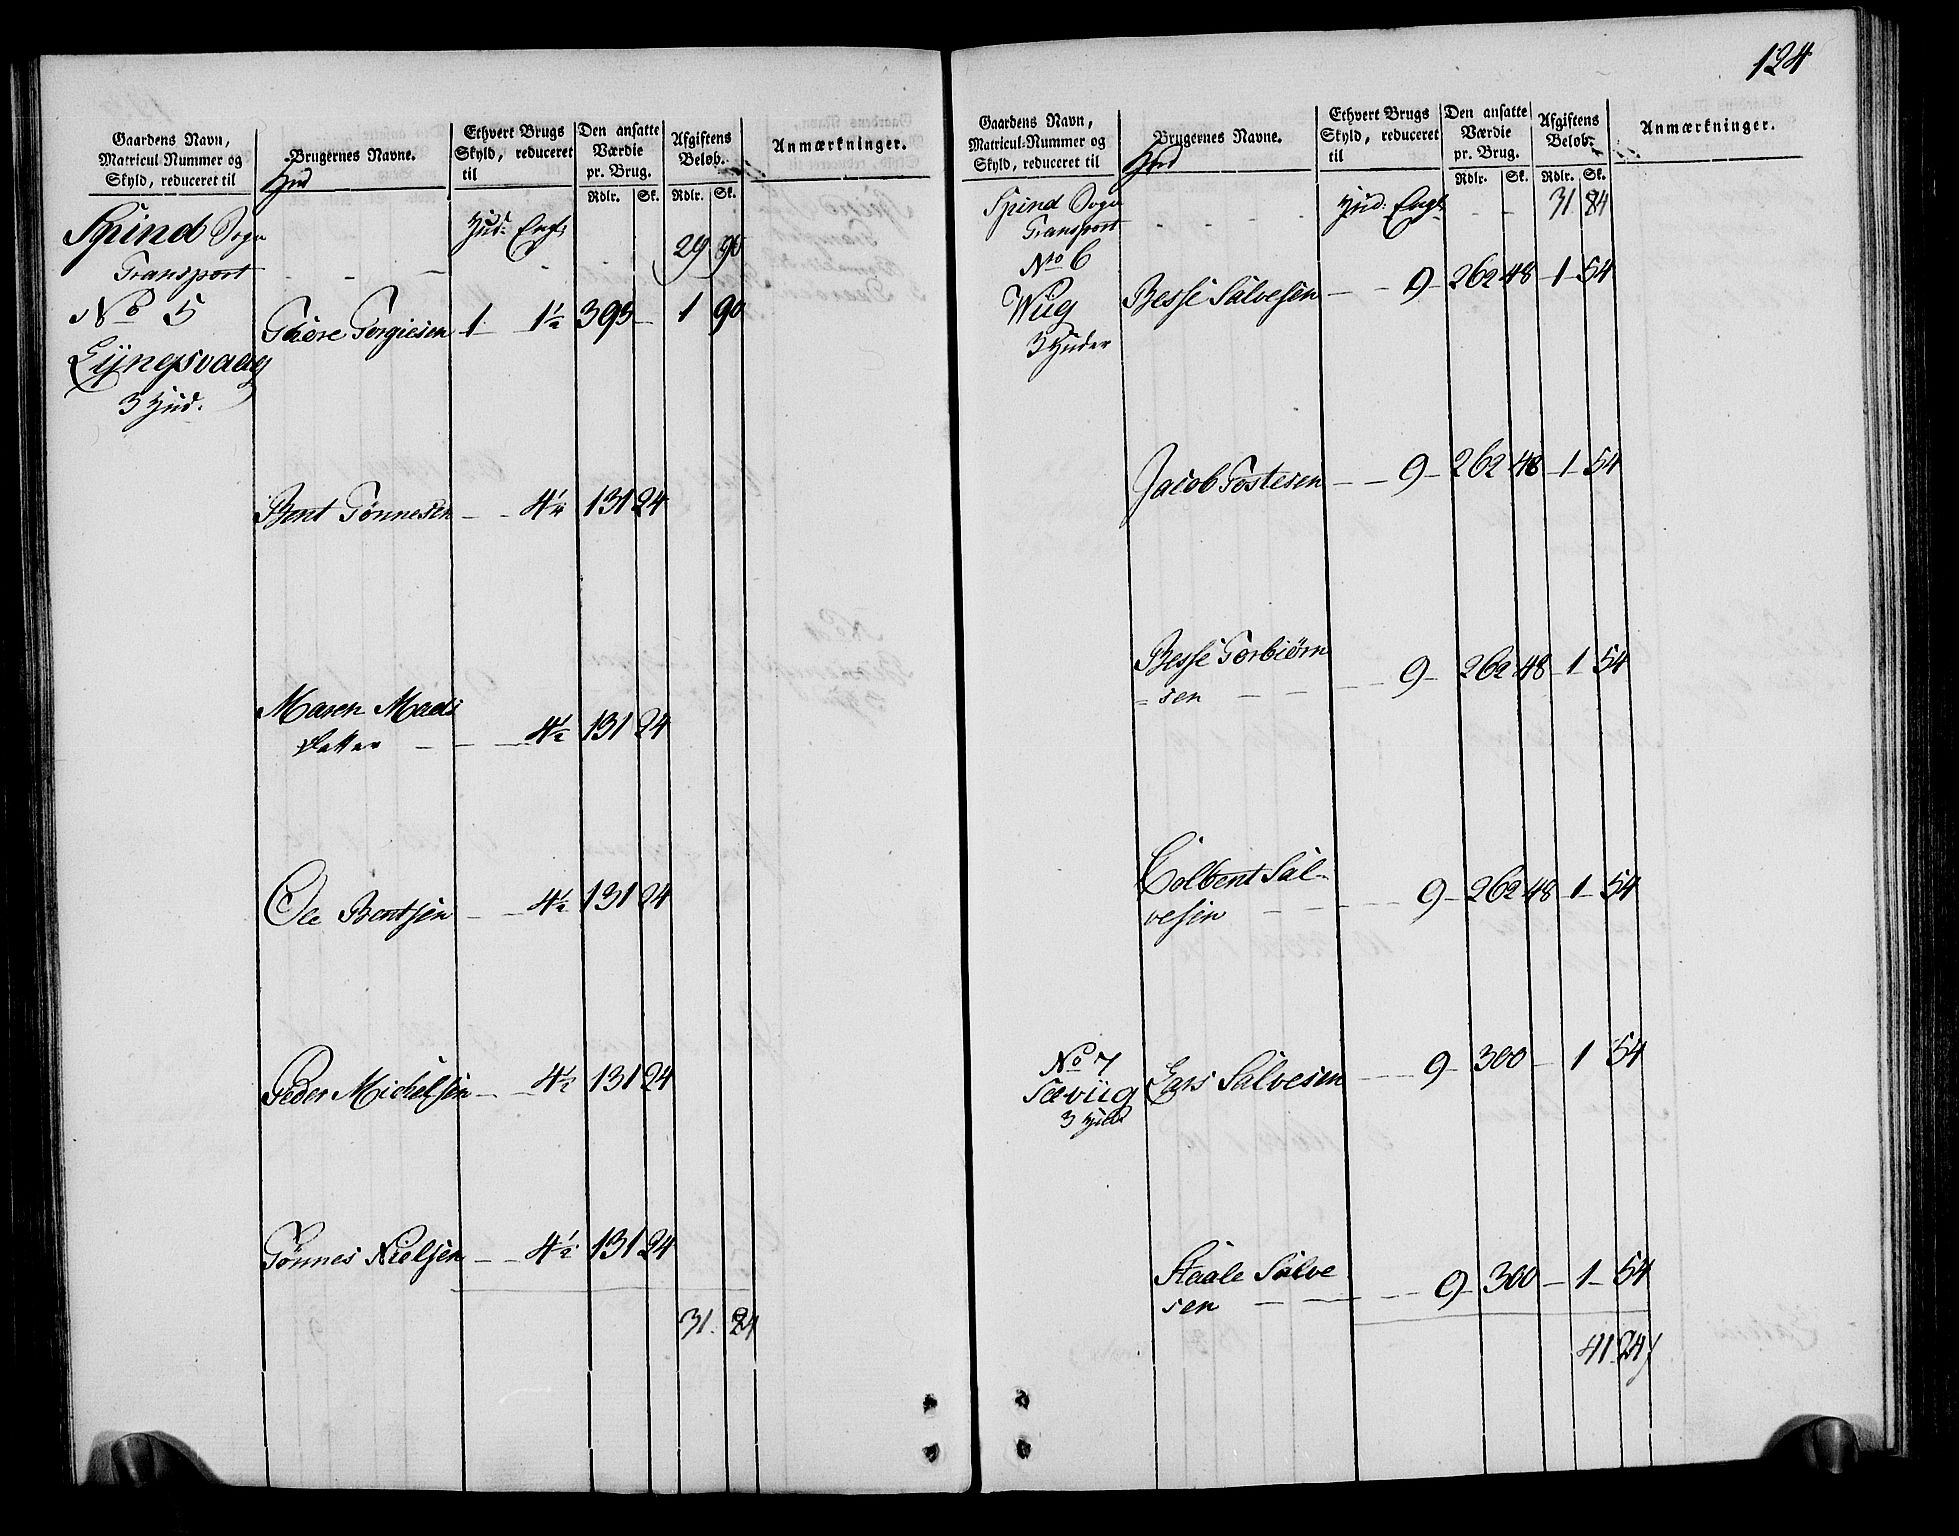 124
Gaardens Navn,
Matricul-Nummer og
Skyld, reduceret til
Hud
Brugernes Navne.
Ethvert Brugs
Skyld, reduceret
til
Den ansatte
Værdie
pr. Brug.
Rdlr. Sk.
Afgiftens
Beløb.
Rdlr. Sk.
Anmærkninger.
Spind Sogn Hud: Eng:
Transport - - - - 29 90
No 5
Lÿngsvaag
3 Hud.
Thore Torgiesen 1 1½ 393 - 1 90
Bent Tønnesen - - 4½ 131 24
Maren Mads
Datter - - - 4½ 131 24
Ole Bentsen - - 4½ 131 24
Peder Michelsen - - 4½ 131 24
Tønnes Nielsen - - 4½ 131 24
31 84
Gaardens Navn,
Matricul-Nummer og
Skyld, reduceret til
Hud
Brugernes Navne.
Ethvert Brugs
Skyld, reduceret
til
Den ansatte
Værdie
pr. Brug.
Rdlr. Sk.
Afgiftens
Beløb.
Rdlr. Sk.
Anmærkninger.
Spind Sogn - - Hud: Eng: - - 31 84
Transport
No 6
Wüg
3 Huder
Besse Salvesen - - 9 - 262 48 - 1 - 54
Jacob Tostesen - - 9 - 262 48 - 1 - 54
Besse Torbiørn
= sen - - - 9 - 262 48 - 1 54
Colbent Sal-
vesen - - - 9 - 262 48 - 1 - 54
No 7
Sævüg
3 Hud
Lars Salvesen - - 9 - 300 - 1 54
Staale Salve
sen - - - 9 - 300 - 1 - 54
41 24